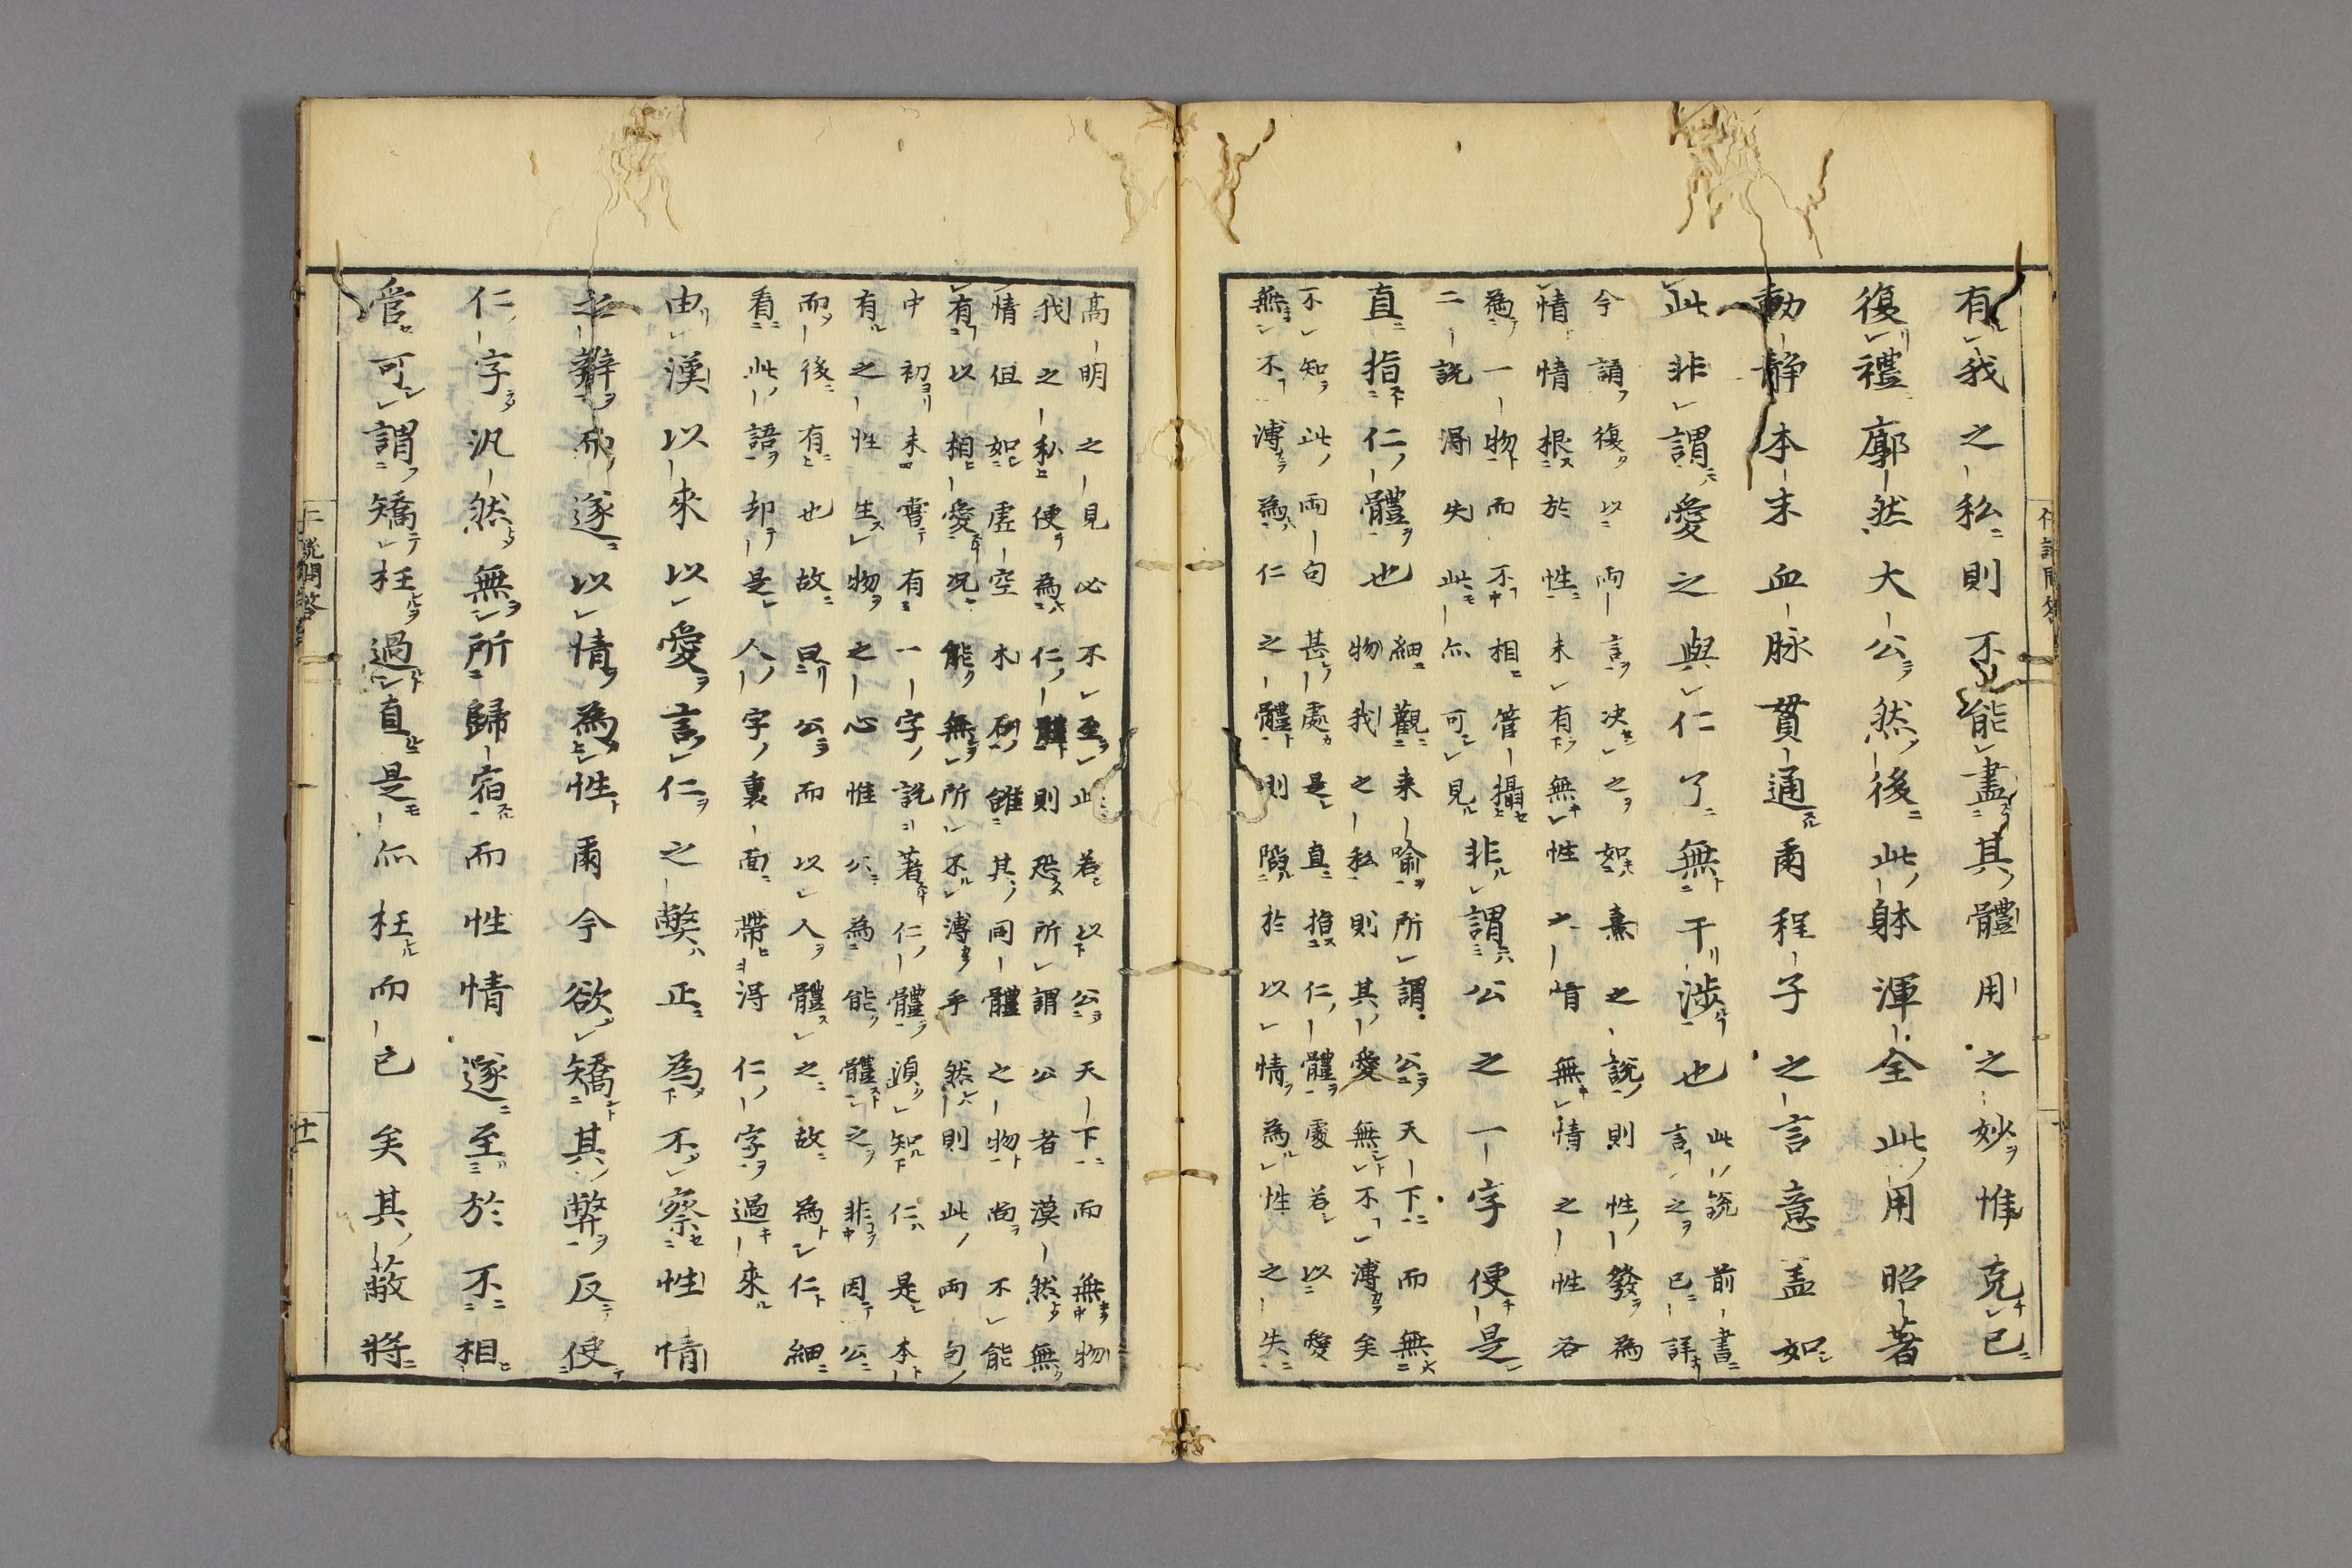 有我之私則不能盡其體用之妙惟克己
復禮廓然大公然後此躰渾全此用昭著
動静本末血脉貫通爾程子之言意蓋如
此非謂愛之與仁了無干涉也
此説前書
言之已詳
今誦復以兩言决之如熹之説則性發為
情情根於性未有無性之情無情之性各
為一物而不相管攝
二説得失此亦可見
非謂公之一字便是
直指仁體也
細觀来喻所謂公天下而無
物我之私則其愛無不溥矣
不知此兩句甚處是直指仁體處若以愛
無不溥為仁之體則陷於以情為性之失
高明之見必不至此若以公天下而無物
我之私便為仁體則恐所謂公者漠然無
情但如虚空木石雖其同體之物尚不能
有以相愛况能無所不溥乎然則此兩句
中初未甞有一字説著仁體須知仁是本
有之性生物之心惟公為能體之非因公
而後有也故曰公而以人體之故為仁細
看此語却是人字裏面帶得仁字過來
由漢以來以愛言仁之弊正為不察性情
之辨而遂以情為性爾今欲矯其弊反使
仁字汎然無所歸宿而性情遂至於不相
管可謂矯枉過直是亦枉而已矣其蔽將
仁説問答
十一